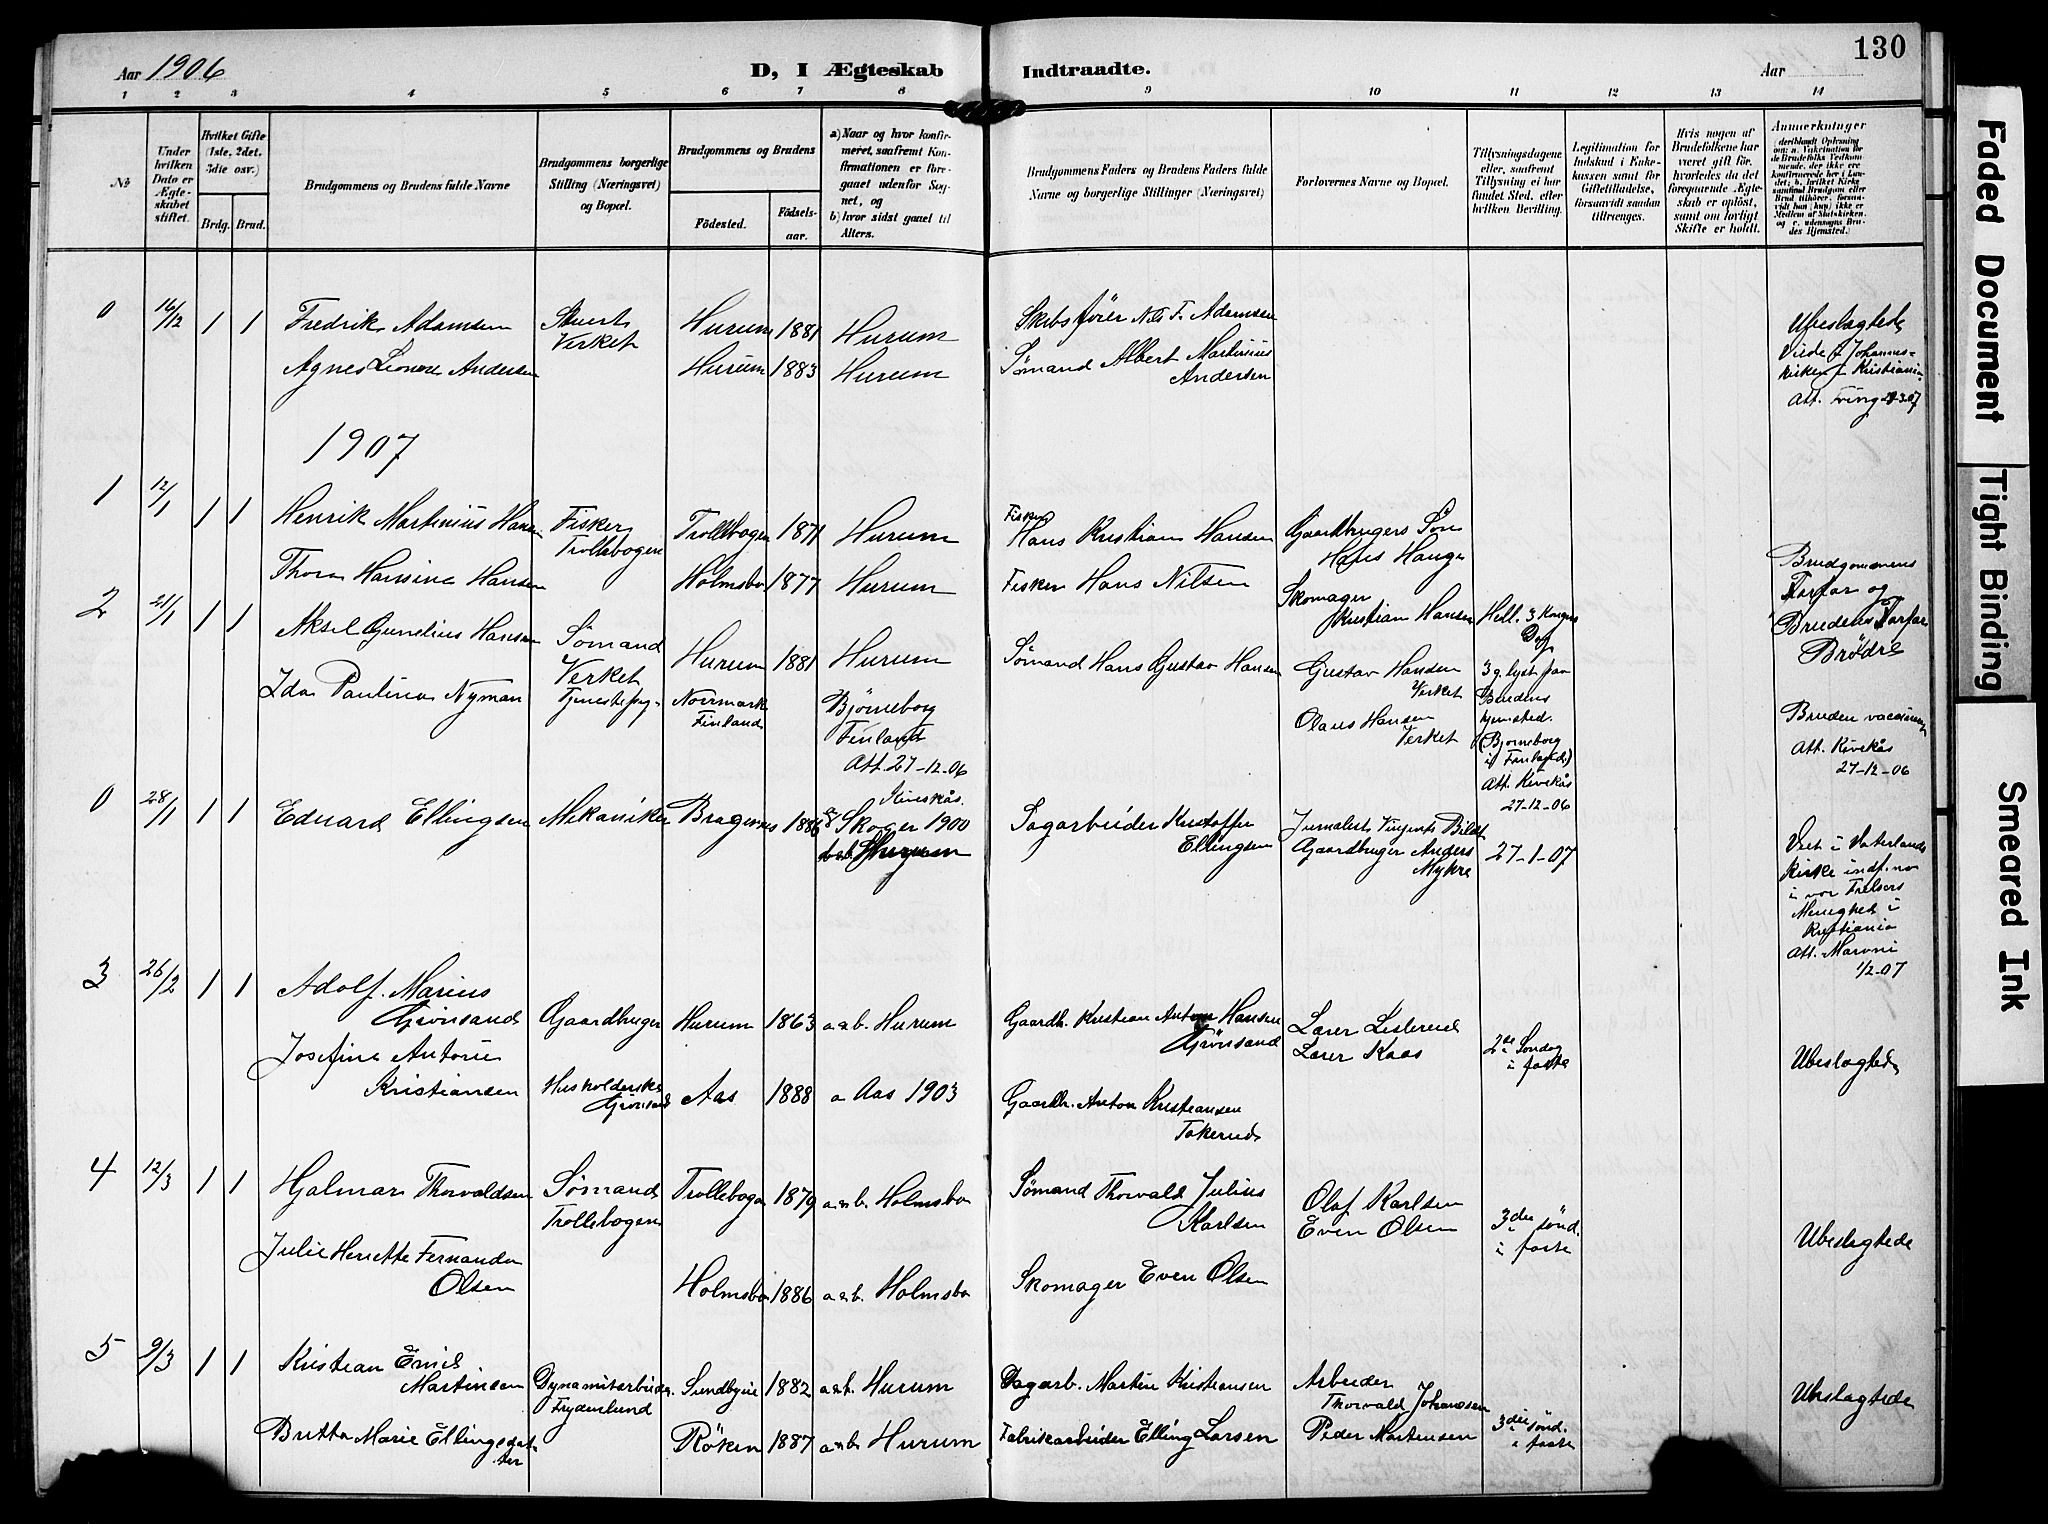 130
Aar 1906
D, I Ægteskab Indtraadte.
Aar
1 2 3 4 5 6 7 8 9 10 11 12 13 14
No
Under hvilken Dato er Ægteskabet stiftet.
Hvilket Gifte (1ste, 2det, 3die osv.)
Brdg. Brud.
Brudgommens og Brudens fulde Navne
Brudgommens borgerlige Stilling (Næringsvei) og Bopæl.
Brudgommens og Brudens
Födested.
Födsels-aar.
a) Naar og hvor konfirmeret, saafremt Konfirmationen er foregaaet udenfor Sognet, og
b) hvor sidst gaaet til Alters.
Brudgommens Faders og Brudens Faders fulde Navne og borgerlige Stillinger (Næringsvei)
Forlovernes Navne og Bopæl.
Tillysningsdagene eller, saafremt Tillysning ei har fundet Sted, efter hvilken Bevilling.
Legitimation for Indskud i Enkekassen samt for Giftetilladelse, forsaavidt saadan tiltrænges.
Hvis nogen af Brudefolkene har været gift för, hvorledes da det foregaaende Ægteskab er oplöst, samt om lovligt Skifte er holdt.
Anmerkninger
0 16/12 1 1 Fredrik Adamsen
Stuert Verket
Hurum 1881 Hurum
Skibsfører Nils F. Adamsen
Agnes Leonora Andersen
Hurum 1883 Hurum
Sømand Albert Martinius Andersen
Ubeslægtede
Viede i Johannes-
kirken i Kristiania
1907
1 12/1 1 1 Henrik Martinius Hansen
Fisker Trollebogen
Trollbogen 1871 Hurum
Fisker Hans Kristian Hansen
Gaardbrugers Søn
Thora Hansine Hansen
Holmsbo 1877 Hurum
Fisker Hans Nilsen
Skomager
Kristian Hansen
Brudgommens
Farfar og
Brudens Farfar
Brødre
2 21/1 1 1 Aksel Gunelius Hansen
Sømand
Verket
Hurum 1881 Hurum
Sømand Hans Gustav Hansen
Gustav Hansen
Verket
Hell. 3 Kongers
Dag
3 g. lyst paa
Brudens
hjemsted.
(Bjørneborg
i Finland)
Att. Kivekås
27-12-06
Ida Paulina Nyman
Tjenestepig-
Norrmark
Finland
Bjørneborg
Finland
Att. 27-12-06
Kivekås.
Olaus Hansen
Verket
Bruden
Att. Kivekås
27-12-06
0 28/1 1 1 Eduard Ellingsen
Mekaniker
Bragernes 1886
a Skoger 1900
b Hurum
Sagarbeider Kristoffer
Ellingsen
Gaardbruger Anders
Mykre
27-1-07
Viet i Vaterlands
kirke
i vor Frelsers
Menighed i
Kristiania
Att. Maroni
1/2-07
3 26/2 1 1 Adolf Marius
Grønsand
Gaardbruger
Hurum 1863 a & b. Hurum
Gaardb. Kristian Anton Hansen
Grønsand
Lærer Leslereid
Lærer Kaas
2de Søndag
i faste
Josefine Antonie
Kristiansen
Husholderske
Grønsand
Aas 1888 a Aas 1903
Gaardb. Anton Kristiansen
Takerud
Ubeslægtede
4 12/3 1 1 Hjalmar Thorvaldsen
Sømand
Trollebogen
Trollebogen 1879 a & b. Holmsbo
Sømand Thorvald Julius
Karlsen
Olaf Karlsen
Even Olsen
3die sønd.
i faste
Julie Henriette Fernanda
Olsen
Holmsbo 1886 a & b. Holmsbo
Skomager Even Olsen
Ubeslægtede
5 9/3 1 1 Kristian Emil
Martinsen
Dynamitarbeider.
Frydenlund
Sundbyeie 1882 a & b. Hurum
Dagarb. Martin Kristiansen
Arbeider
Thorvald Johansen
Britta Marie Ellingsdat-
ter
Røken 1887 a & b. Hurum
Fabrikarbeider Elling Larsen
Peder Mortensen
3die sønd.
i faste
Ubeslægtede
Faded Document
Tight Binding
Smeared Ink